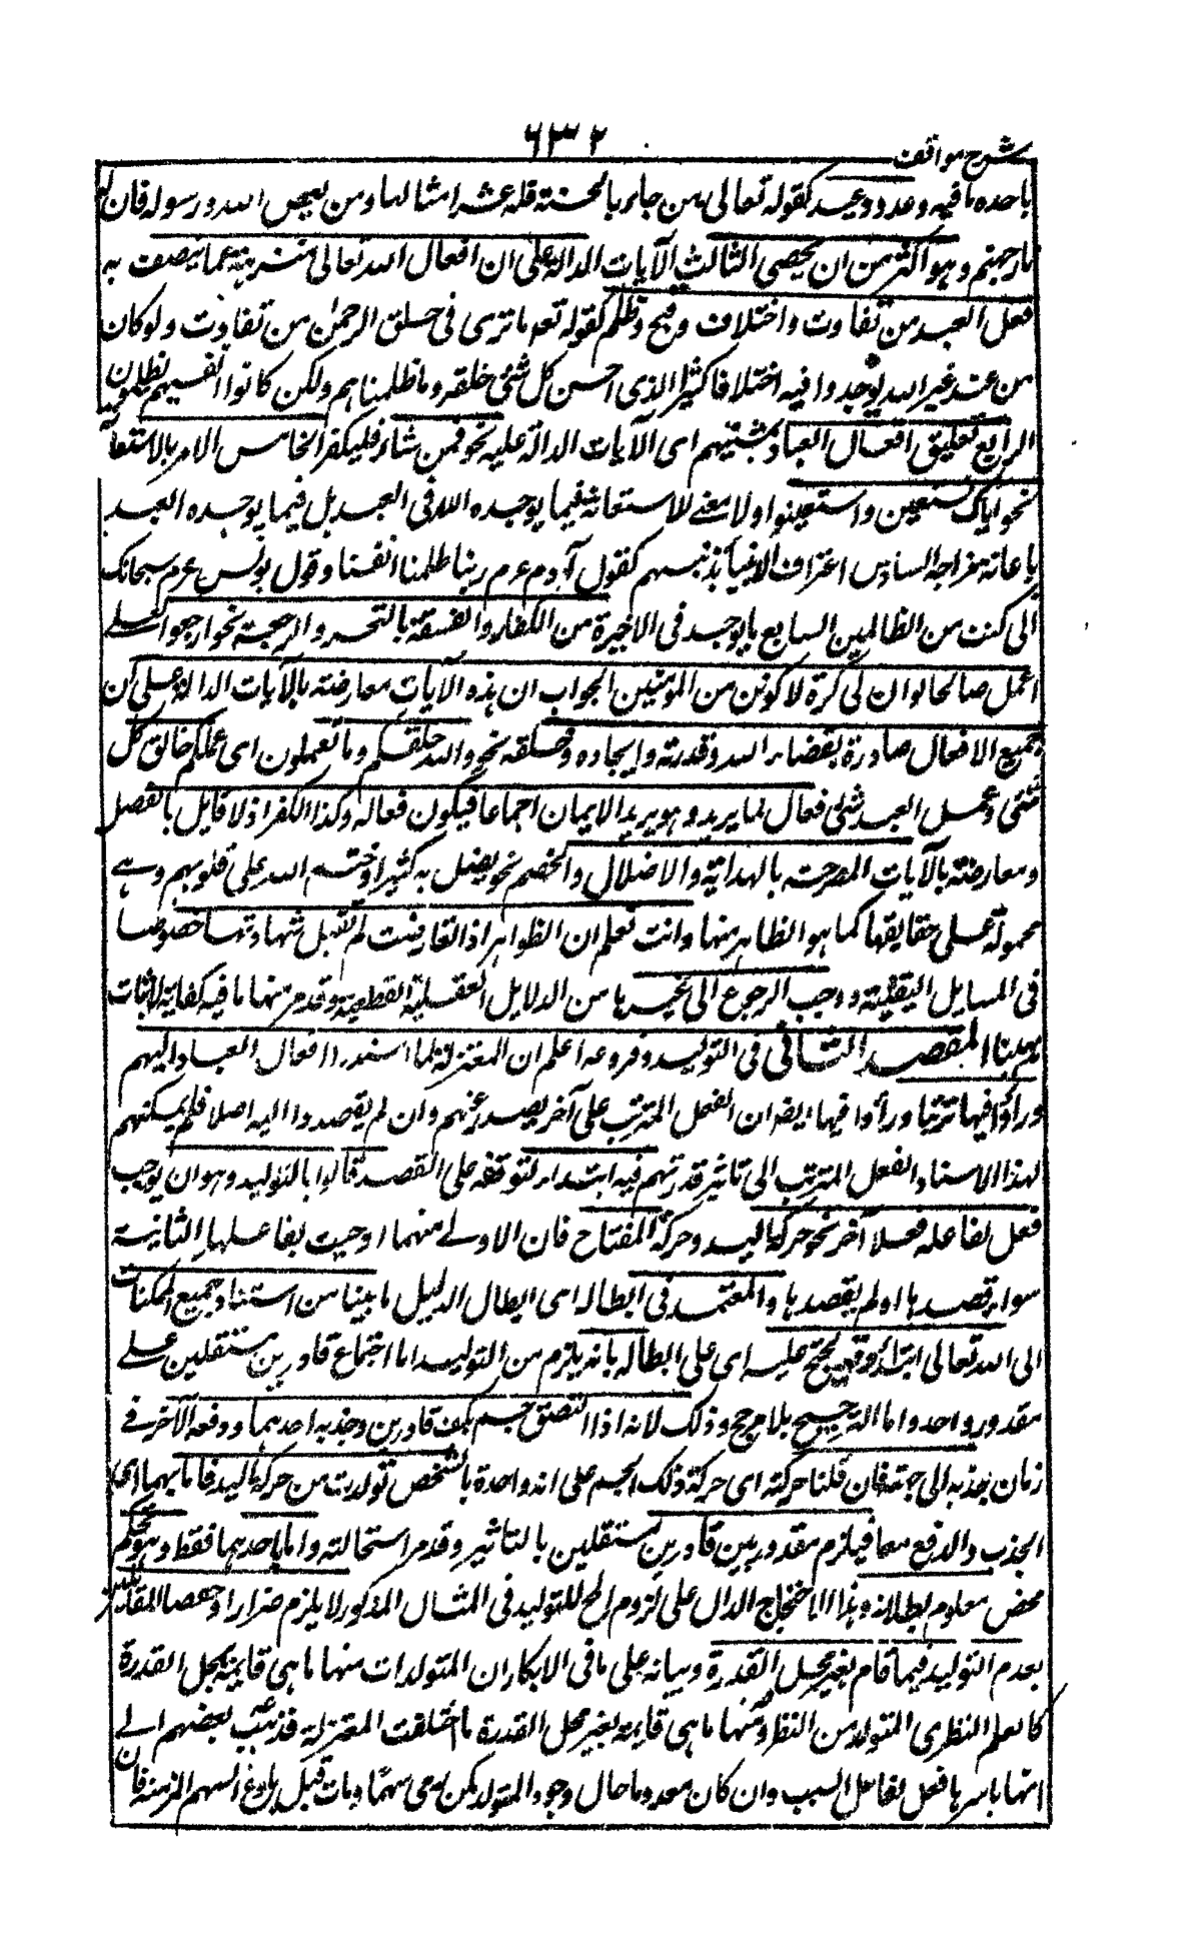 شرح مواقف
٦٣٢
باحده ما فيه وعد ووعيد كقوله تعالى من جاء بالحسنة فله عشر امثالها ومن يعص الله ورسوله فان له
نار جهنم وهو اكثر من ان يحصى الثالث الآيات الدالة على ان افعال الله تعالى منزهة عما يتصف به
فعل العبد من تفاوت واختلاف وقبح وظلم كقوله تعه ما ترى فى خلق الرحمن من تفاوت ولو كان
من عند غير الله لوجدوا فيه اختلافا كثيرا الذى احسن كل شئ خلقه وما ظلمناهم ولكن كانوا انفسهم يظلمون
الرابع تعليق افعال العباد بمشيتهم اى الآيات الدالة عليه نحو فمن شاء فليكفر الخامس الامر بالاستعانة
نحو اياك نستعين واستعينوا ولا معنے للاستعانة فيما يوجده الله فى العبد بل فيما يوجده العبد
باعانة من ربه السادس اعتراف الانبياء بذنبهم كقول آدم عرم ربنا ظلمنا انفسنا وقول يونس عرم سبحانك
انى كنت من الظالمين السابع ما يوجد فى الاخيرة من الكفار والفسقة بالتحسر والرجعة نحو ارجعوا لعلے
اعمل صالحا لو ان لى كرة لاكونن من المؤمنين الجواب ان هذه الآيات معارضة بالآيات الدالة على ان
جميع الافعال صادرة بقضاء الله وقدرته وايجاده وخلقه نحو والله خلقكم وما تعملون اى عملكم خالق كل
شئى وعمل العبد شئى فعال لما يريد وهو يريد الايمان اجماعا فيكون فعاله وكذا الكفر اذ لا قايل بالفصل
ومعارضة بالآيات المصرحة بالهداية والاضلال والختم نحو يضل به كثيرا وختم الله على قلوبهم وهے
محمولة على حقايقها كما هو الظاهر منها وانت تعلم ان الظواهر اذا تعارضت لم تقبل شهادتها خصوصا
فى المسايل اليقينية ووجب الرجوع الى غيرها من الدلايل العقلية القطعية وقد مر منها ما فيه كفاية لاثبات
مذهبنا المقصد الثانى فى التوليد وفروعه اعلم ان المعتزلة لما اسندوا افعال العباد اليهم
ورأوا فيها ترتبا ورأوا فيها ايضا ان الفعل المترتب على آخر يصدر عنهم وان لم يقصدوا اليه اصلا فلم يمكنهم
لهذا الاسناد الفعل المترتب الى تاثير قدرتهم فيه ابتداء لتوقفه على القصد قالوا بالتوليد وهو ان يوجب
فعل لفاعله فعلا آخر نحو حركة اليد وحركة المفتاح فان الاولے منهما اوجبت لفاعلها الثانية
سواء قصدها او لم يقصدها والمعتمد فى ابطاله اى ابطال الدليل ما بينا من استناد جميع الممكنات
الى الله تعالى ابتداء وقد يحتج عليه اى على ابطاله بانه يلزم من التوليد اما اجتماع قادرين مستقلين علے
مقدور واحد واما الترجيح بلا مرجح وذلك لانه اذا التصق جسم بكف قادرين وجذبه احدهما ودفعه الآخر فے
زمان جذبه الى جهته فان قلنا حركته اى حركة ذلك الجسم على انه واحدة بالشخص تولدت من حركة اليد فاما بهما اى
الجذب والدفع معا فيلزم مقدور بين قادرين مستقلين بالتاثير وقد مر استحالته واما باحدهما فقط وهو تحكم
محض معلوم بطلانه وهذا الاحتجاج الدال على لزوم المح للتوليد فى المثال المذكور لا يلزم ضرارا وحفصا القائلين
بعدم التوليد فيما قام بغير محل القدرة وبيانه على ما فى الابكار ان المتولدات منها ما هى قايمة بمحل القدرة
كالعلم النظرى المتولد من النظر ومنها ما هى قايمة بغير محل القدرة ما اختلفت المعتزلة فذهب بعضهم الے
انها باسرها فعل لفاعل السبب وان كان معدوما حال وجود المتولد كمن رمى سهما ومات قبل بلوغ السهم الرمية فان